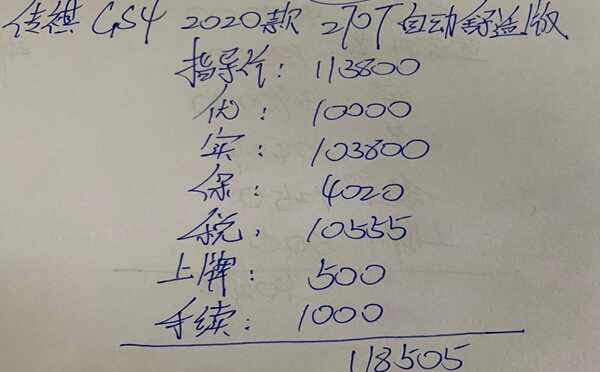 传祺 GS4 2020款 270T 自动舒适版
指导价: 113800
优: 10000
实: 103800
保: 4020
税, 10555
上牌: 500
手续: 1000
118505